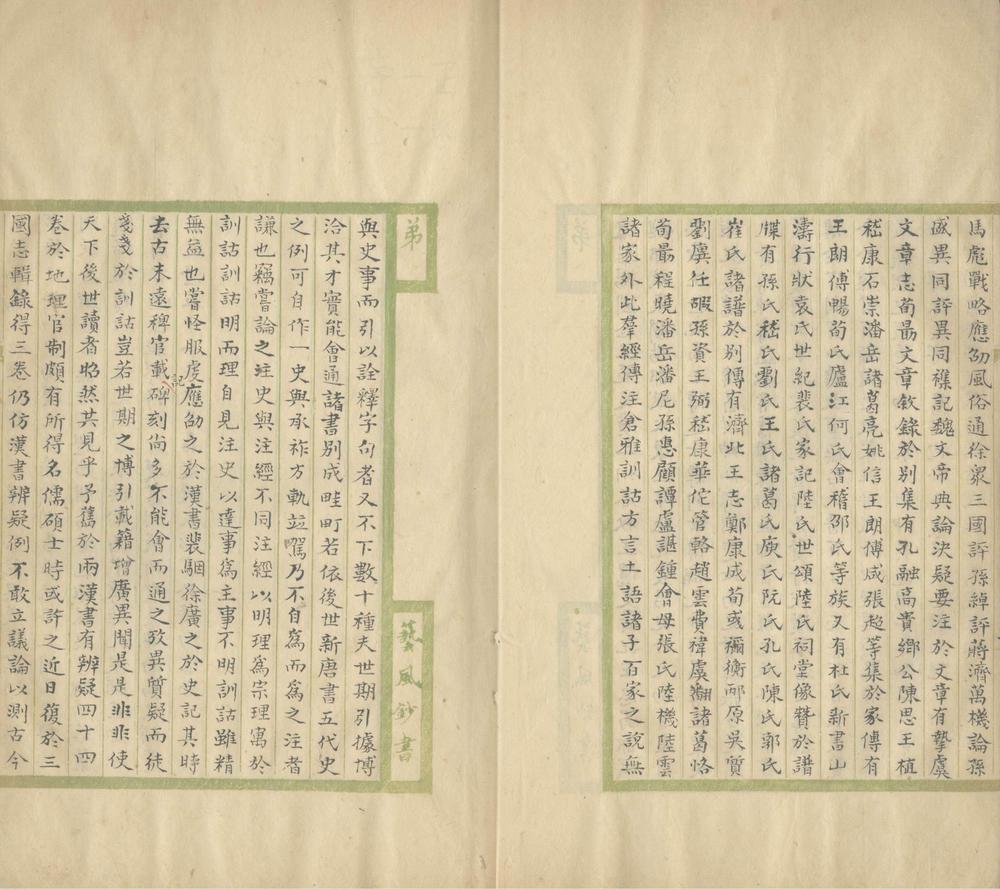 馬彪戰略應劭風俗通徐衆三國評孫綽評蔣濟萬機論孫
盛異同評異同襍記魏文帝典論決疑要注於文章有摯虞
文章志荀勗文章敘錄於別集有孔融高貴鄉公陳思王植
嵇康石崇潘岳諸葛亮姚信王朗傅咸張超等集於家傳有
王朗傅暢荀氏廬江何氏會稽邵氏等族又有杜氏新書山
濤行狀袁氏世紀裴氏家記陸氏世頌陸氏祠堂像贊於譜
牒有孫氏嵇氏劉氏王氏諸葛氏庾氏阮氏孔氏陳氏郭氏
崔氏諸譜於別傳有濟北王志鄭康成荀彧禰衡邴原吳質
劉廙任嘏孫資王弼嵇康華佗管輅趙雲費禕虞翻諸葛恪
荀勗程曉潘岳潘尼孫惠顧譚盧諶鍾會母張氏陸機陸雲
諸家外此羣經傳注倉雅訓詁方言土語諸子百家之說無
與史事而引以詮釋字句者又不下數十種夫世期引據博
洽其才實能會通諸書別成畦町若依後世新唐書五代史
之例可自作一史與承祚方軌竝駕乃不自為而為之注者
謙也竊嘗論之注史與注經不同注經以明理為宗理寓於
訓詁訓詁明而理自見注史以達事為主事不明訓詁雖精
無益也嘗怪服虔應劭之於漢書裴駰徐廣之於史記其時
去古未遠稗官載記碑刻尚多不能會而通之攷異質疑而徒
戔戔於訓詁豈若世期之博引載籍增廣異聞是是非非使
天下後世讀者昭然共見乎予舊於兩漢書有辨疑四十四
卷於地理官制頗有所得名儒碩士時或許之近日復於三
國志輯錄得三卷仍仿漢書辨疑例不敢立議論以測古今
弟
藝風鈔書